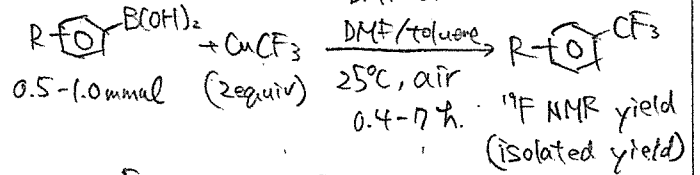 R B(OH)₂ + CuCF₃ DMF/toluene R CF₃
0.5-1.0 mmol (2equiv) 25°C, air
0.4-7 h. ¹⁹F NMR yield
(isolated yield)